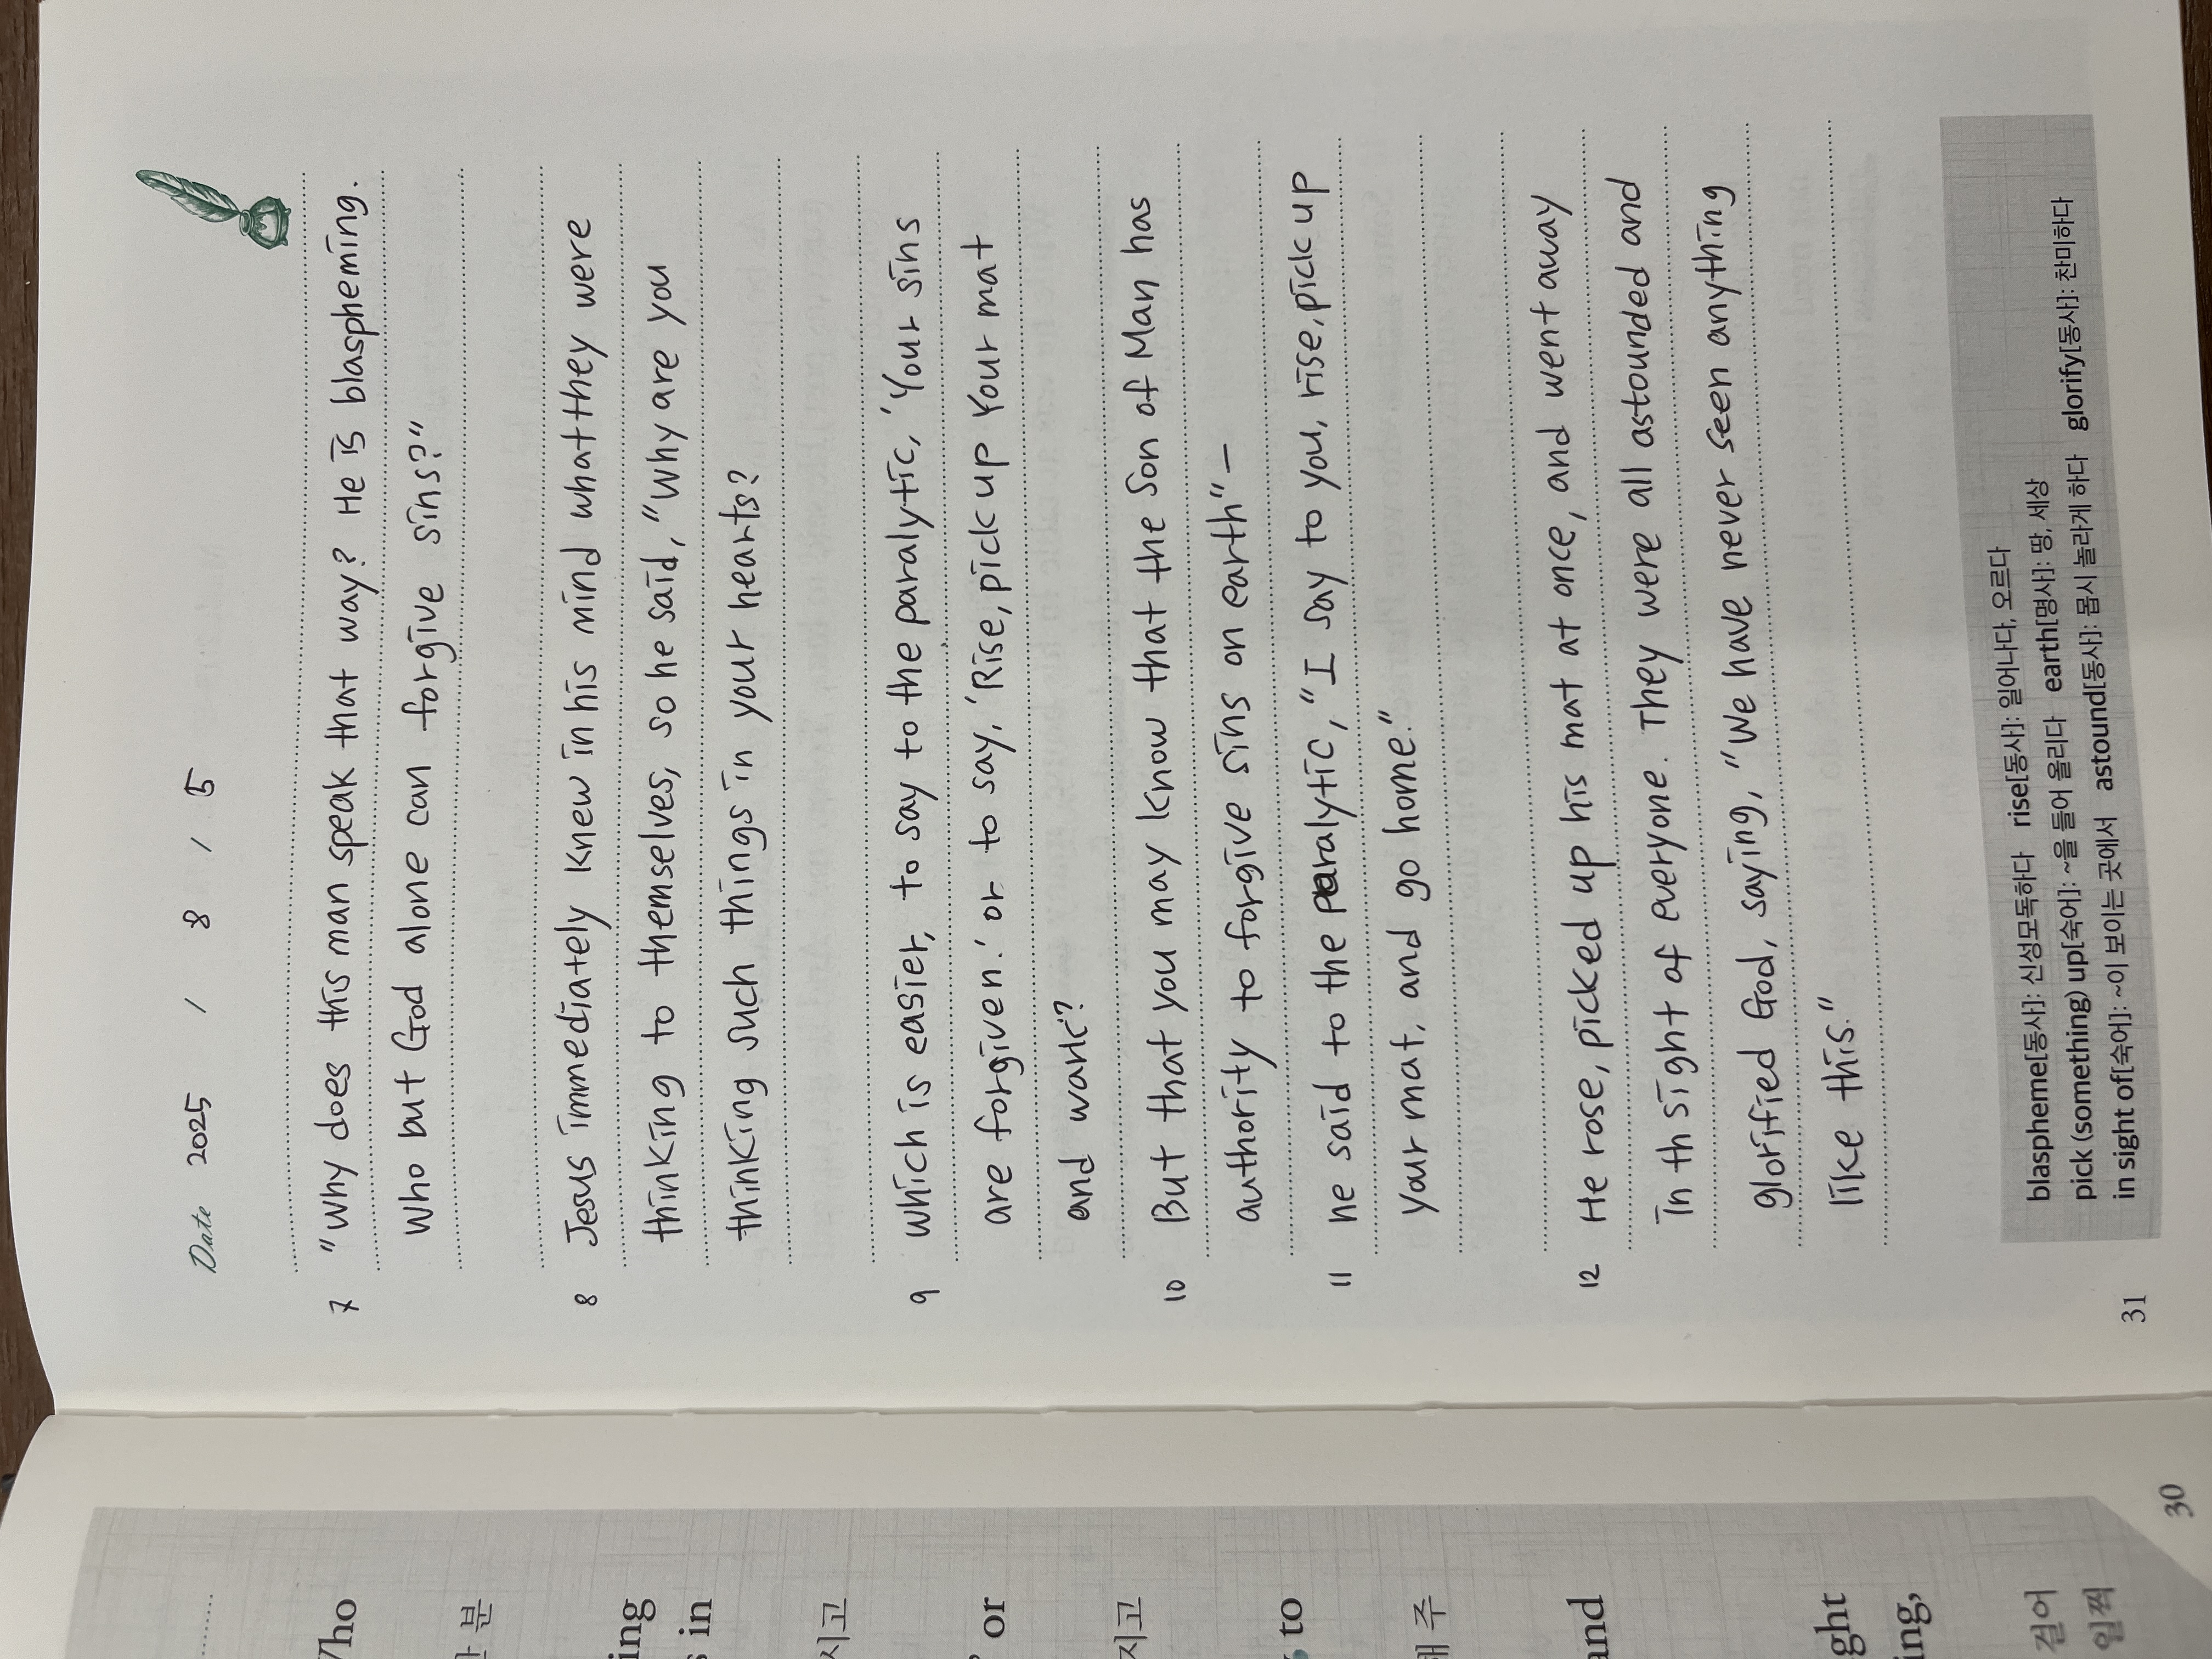 Date 2025 / 8 / 5
7 "Why does this man speak that way? He is blaspheming.
Who but God alone can forgive sins?"
8 Jesus immediately knew in his mind what they were
thinking to themselves, so he said, "Why are you
thinking such things in your hearts?
9 which is easier, to say to the paralytic, 'Your sins
are forgiven.' or to say, 'Rise, pick up Your mat
and walk'?
10 But that you may know that the Son of Man has
authority to forgive sins on earth" —
11 he said to the paralytic, "I say to you, rise, pick up
your mat, and go home."
12 He rose, picked up his mat at once, and went away
in th sight of everyone. They were all astounded and
glorified God, saying, "We have never seen anything
like this."
blaspheme[동사]: 신성모독하다 rise[동사]: 일어나다, 오르다
pick (something) up[숙어]: ~을 들어 올리다 earth[명사]: 땅, 세상
in sight of[숙어]: ~이 보이는 곳에서 astound[동사]: 몹시 놀라게 하다 glorify[동사]: 찬미하다
31
Who
분
ing
in
시고
' or
지고
to
해 주
and
ght
ing,
걸어
일찍
30